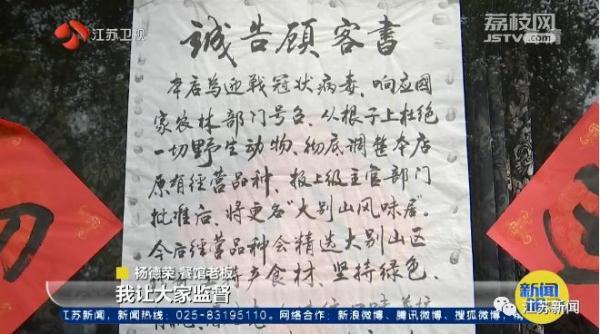 江苏卫视
荔枝网
JSTV.com
誠告顾客書
本店为迎戰冠状病毒、响应国
家农林部门号召、从根子上杜绝
一切野生动物、彻底調整本店
原有经营品种，报上级主官部门
批准后、将更名“大别山风味居”。
今后经营品种会精选大别山区
产食材、坚持绿色、
杨德荣 餐馆老板
我让大家监督
新闻
江苏新闻，新闻热线：025-83195110，网络合作：新浪微博、腾讯微博、搜狐微博
江苏新闻